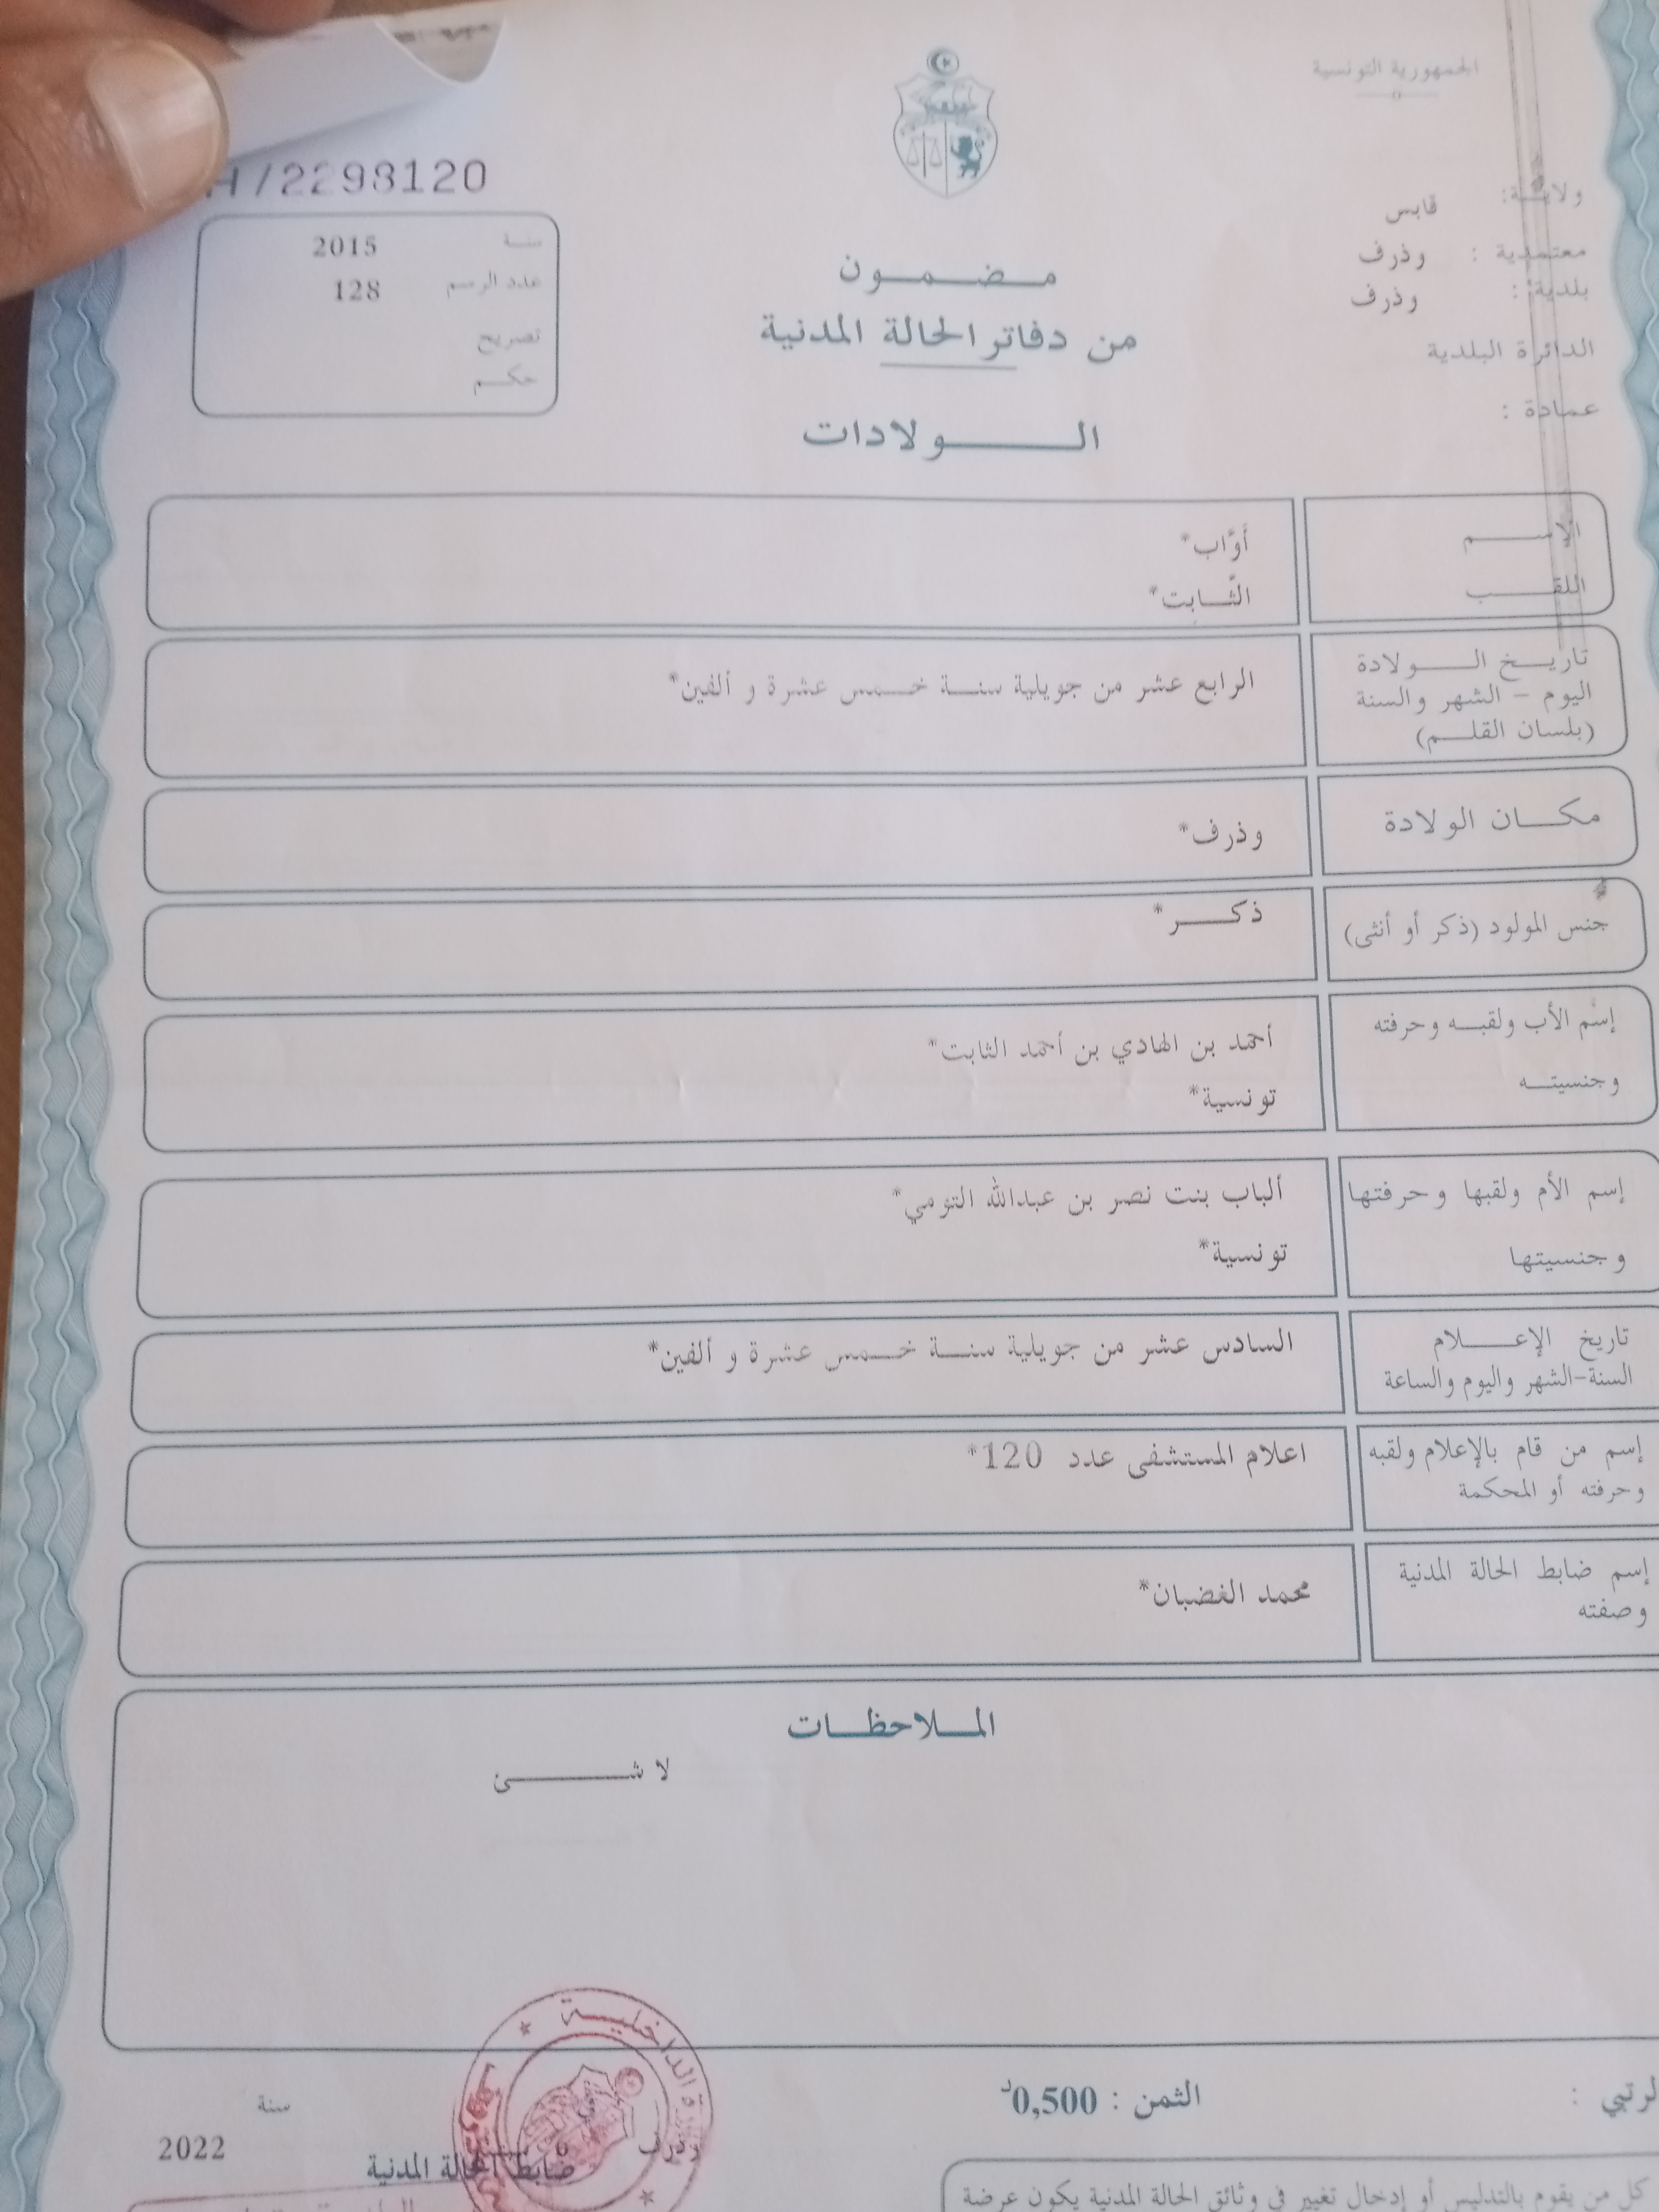 الجمهورية التونسية
ولايـة: قابس
معتمدية : وذرف
بلدية : وذرف
الدائرة البلدية
عمادة :
H/2298120
سنة 2015
عدد الرسم 128
تصريح
حكم
مضمون
من دفاتر الحالة المدنية
الولادات
الاسم أوّاب*
اللقب الثّابت*
تاريخ الولادة
اليوم - الشهر والسنة
(بلسان القلم)
الرابع عشر من جويلية سنة خمس عشرة و ألفين*
مكان الولادة وذرف*
جنس المولود (ذكر أو أنثى) ذكر*
إسم الأب ولقبه وحرفته
وجنسيته
أحمد بن الهادي بن أحمد الثابت*
تونسية*
إسم الأم ولقبها وحرفتها
وجنسيتها
ألباب بنت نصر بن عبدالله التومي*
تونسية*
تاريخ الإعلام
السنة-الشهر واليوم والساعة
السادس عشر من جويلية سنة خمس عشرة و ألفين*
إسم من قام بالإعلام ولقبه
وحرفته أو المحكمة
اعلام المستشفى عدد 120*
إسم ضابط الحالة المدنية
وصفته
محمد الغضبان*
الملاحظات
لا شئ
الثمن : 0,500د
سنة
2022
وذرف
ضابط الحالة المدنية
الداخلية
كل من يقوم بالتدليس أو إدخال تغيير في وثائق الحالة المدنية يكون عرضة